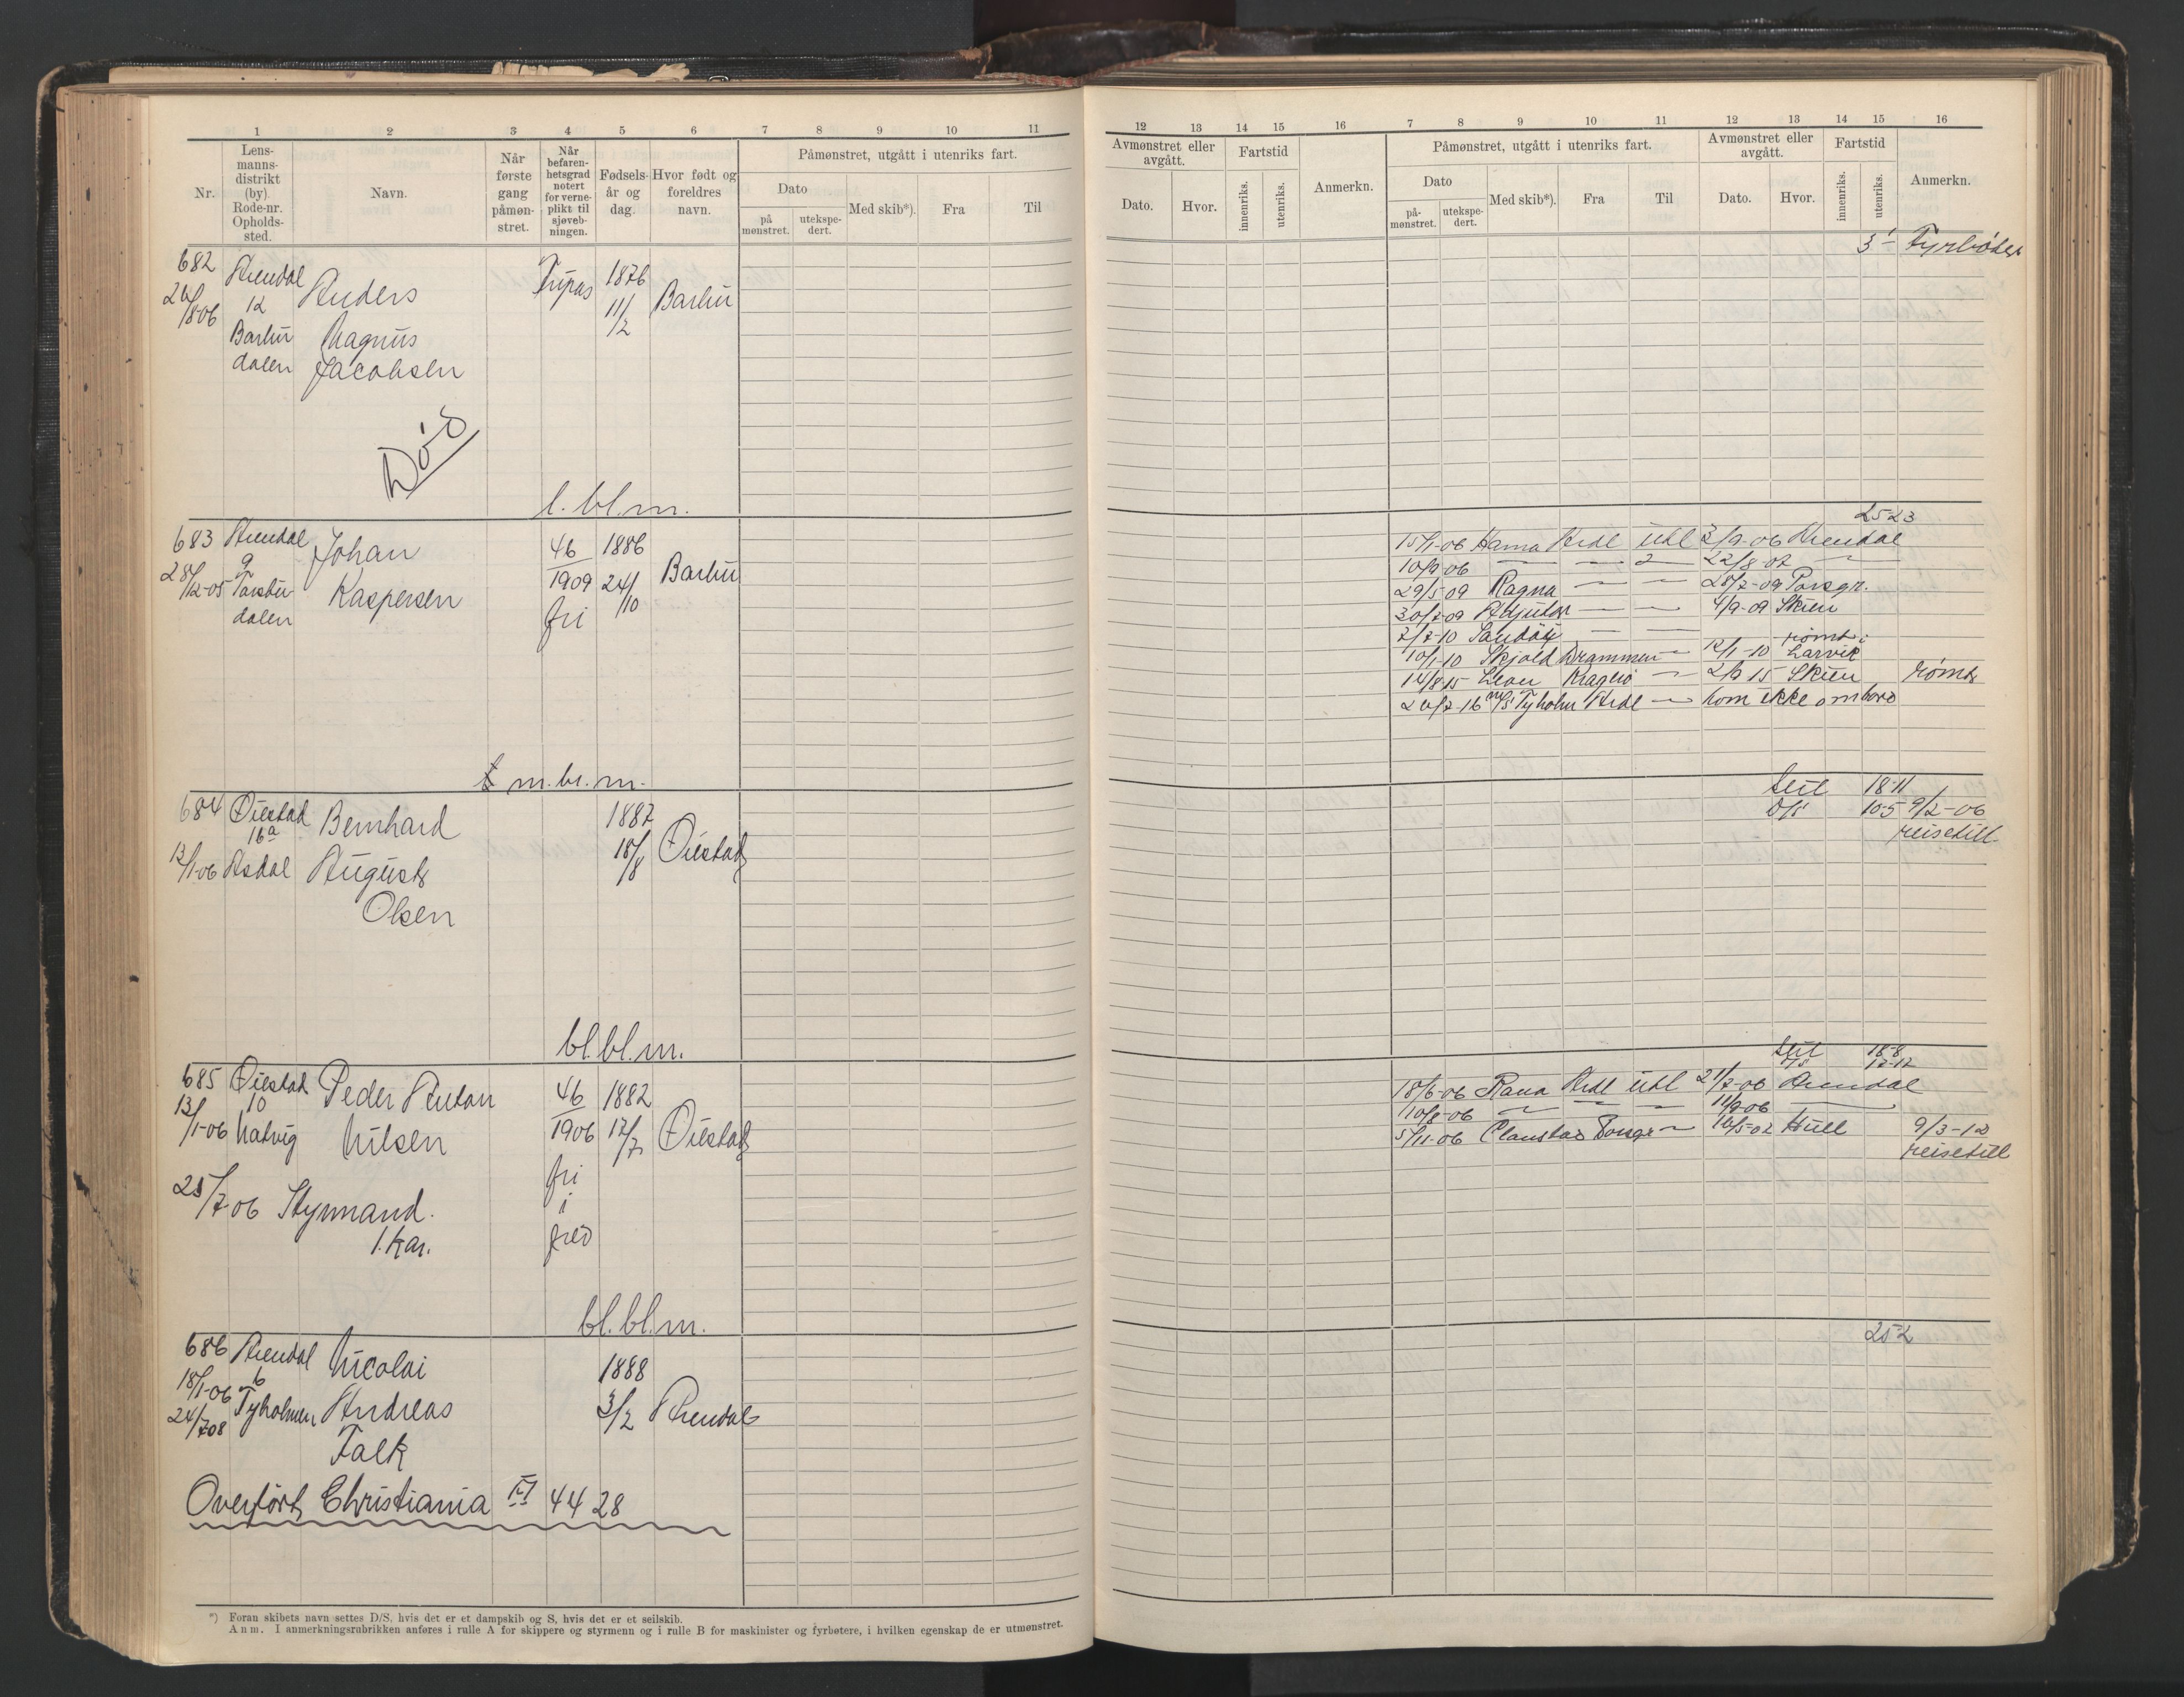 1 2 3 4 5 6 7 8 9 10 11
Nr.
Lens-
manns-
distrikt
(by).
Rode-nr.
Opholds-
sted.
Navn.
Når
første
gang
påmøn-
stret.
Når
befaren-
hetsgrad
notert
for verne-
plikt til
sjøveb-
ningen.
Fødsels-
år og
dag.
Hvor født og
foreldres
navn.
Påmønstret, utgått i utenriks fart.
Dato
på
mønstret.
utekspe-
dert.
Med skib*).
Fra
Til
682 Arendal Anders 1876 Barbu
12 11/2
/8-06
Barbu Magnus
dalen Jacobsen
Død
l. bl. m.
683 Arendal Johan 46 1886
9 Barbu
28/12-05 Kaspersen 1909 24/10
dalen fri
m. br. m.
684 Øiestad Bernhard 1887
16a 18/8 Øiestad
13/1-06 Asdal August
Olsen
bl. bl. m.
685 Øiestad Peder Anton 46 1882
10
13/1-06 Natvig Nilsen 1906 17/7 Øiestad
fri
i
25/7-06 Styrmand. fred
1. kar.
bl. bl. m.
686 Arendal Nicolai 1888
18/1-06 6
24/7 08 Tyholmen Andreas 3/2 Arendal
Falk
Overført Christiania 4428
*) Foran skibets navn settes D/S, hvis det er et dampskib og S, hvis det er et seilskib.
Anm. I anmerkningsrubrikken anføres i rulle A for skippere og styrmenn og i rulle B for maskinister og fyrbøtere, i hvilken egenskap de er utmønstret.
12 13 14 15 16 7 8 9 10 11 12 13 14 15 16
Avmønstret eller
avgått.
Dato.
Hvor.
Fartstid
innenriks.
utenriks.
Anmerkn.
Påmønstret, utgått i utenriks fart.
Dato
på-
mønstret.
utekspe-
dert.
Med skib*).
Fra
Til
Avmønstret eller
avgått.
Dato.
Hvor.
Fartstid
innenriks.
utenriks.
Anmerkn.
3 - Fyrbøder
25-23
15/1-06 Ardl utl 2/9-06 Arendal
10/9-06 22/8-07
29/5-09 Ragna 28/7-09 Porsgr.
30/7-09 Adjutor 4/9-09 Skien
2/7-10 rømt i
10/1-10 Skjold Drammen 12/1-10 Larvik
14/8 15 Kragerø 2/9 15 Skien rømt
20/7-16 m/s Tyholm Ardl kom ikke ombord
Seil 18-11
D/S 10-5 9/2-06
reisetill.
Seil 18-8
D/S 17-12
18/6-06 Rana Ardl utl 21/7-06 Arendal
10/8-06 11/9-06
5/11-06 16/5-07 Hull 9/3-12
reisetill
25-2